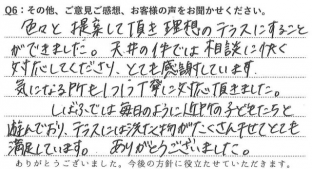 Q6：その他、ご意見ご感想、お客様の声をお聞かせください。
色々と提案して頂き理想のテラスにすること
ができました。天井の件では相談に快く
対応してくださり、とても感謝しています。
気になる所も1つ1つ丁寧に対応頂きました。
しばふでは毎日のように近所の子どもたちと
遊んでおり、テラスには洗たく物がたくさん干せてとても
満足しています。ありがとうございました。
ありがとうございました。今後の方針に役立たせていただきます。